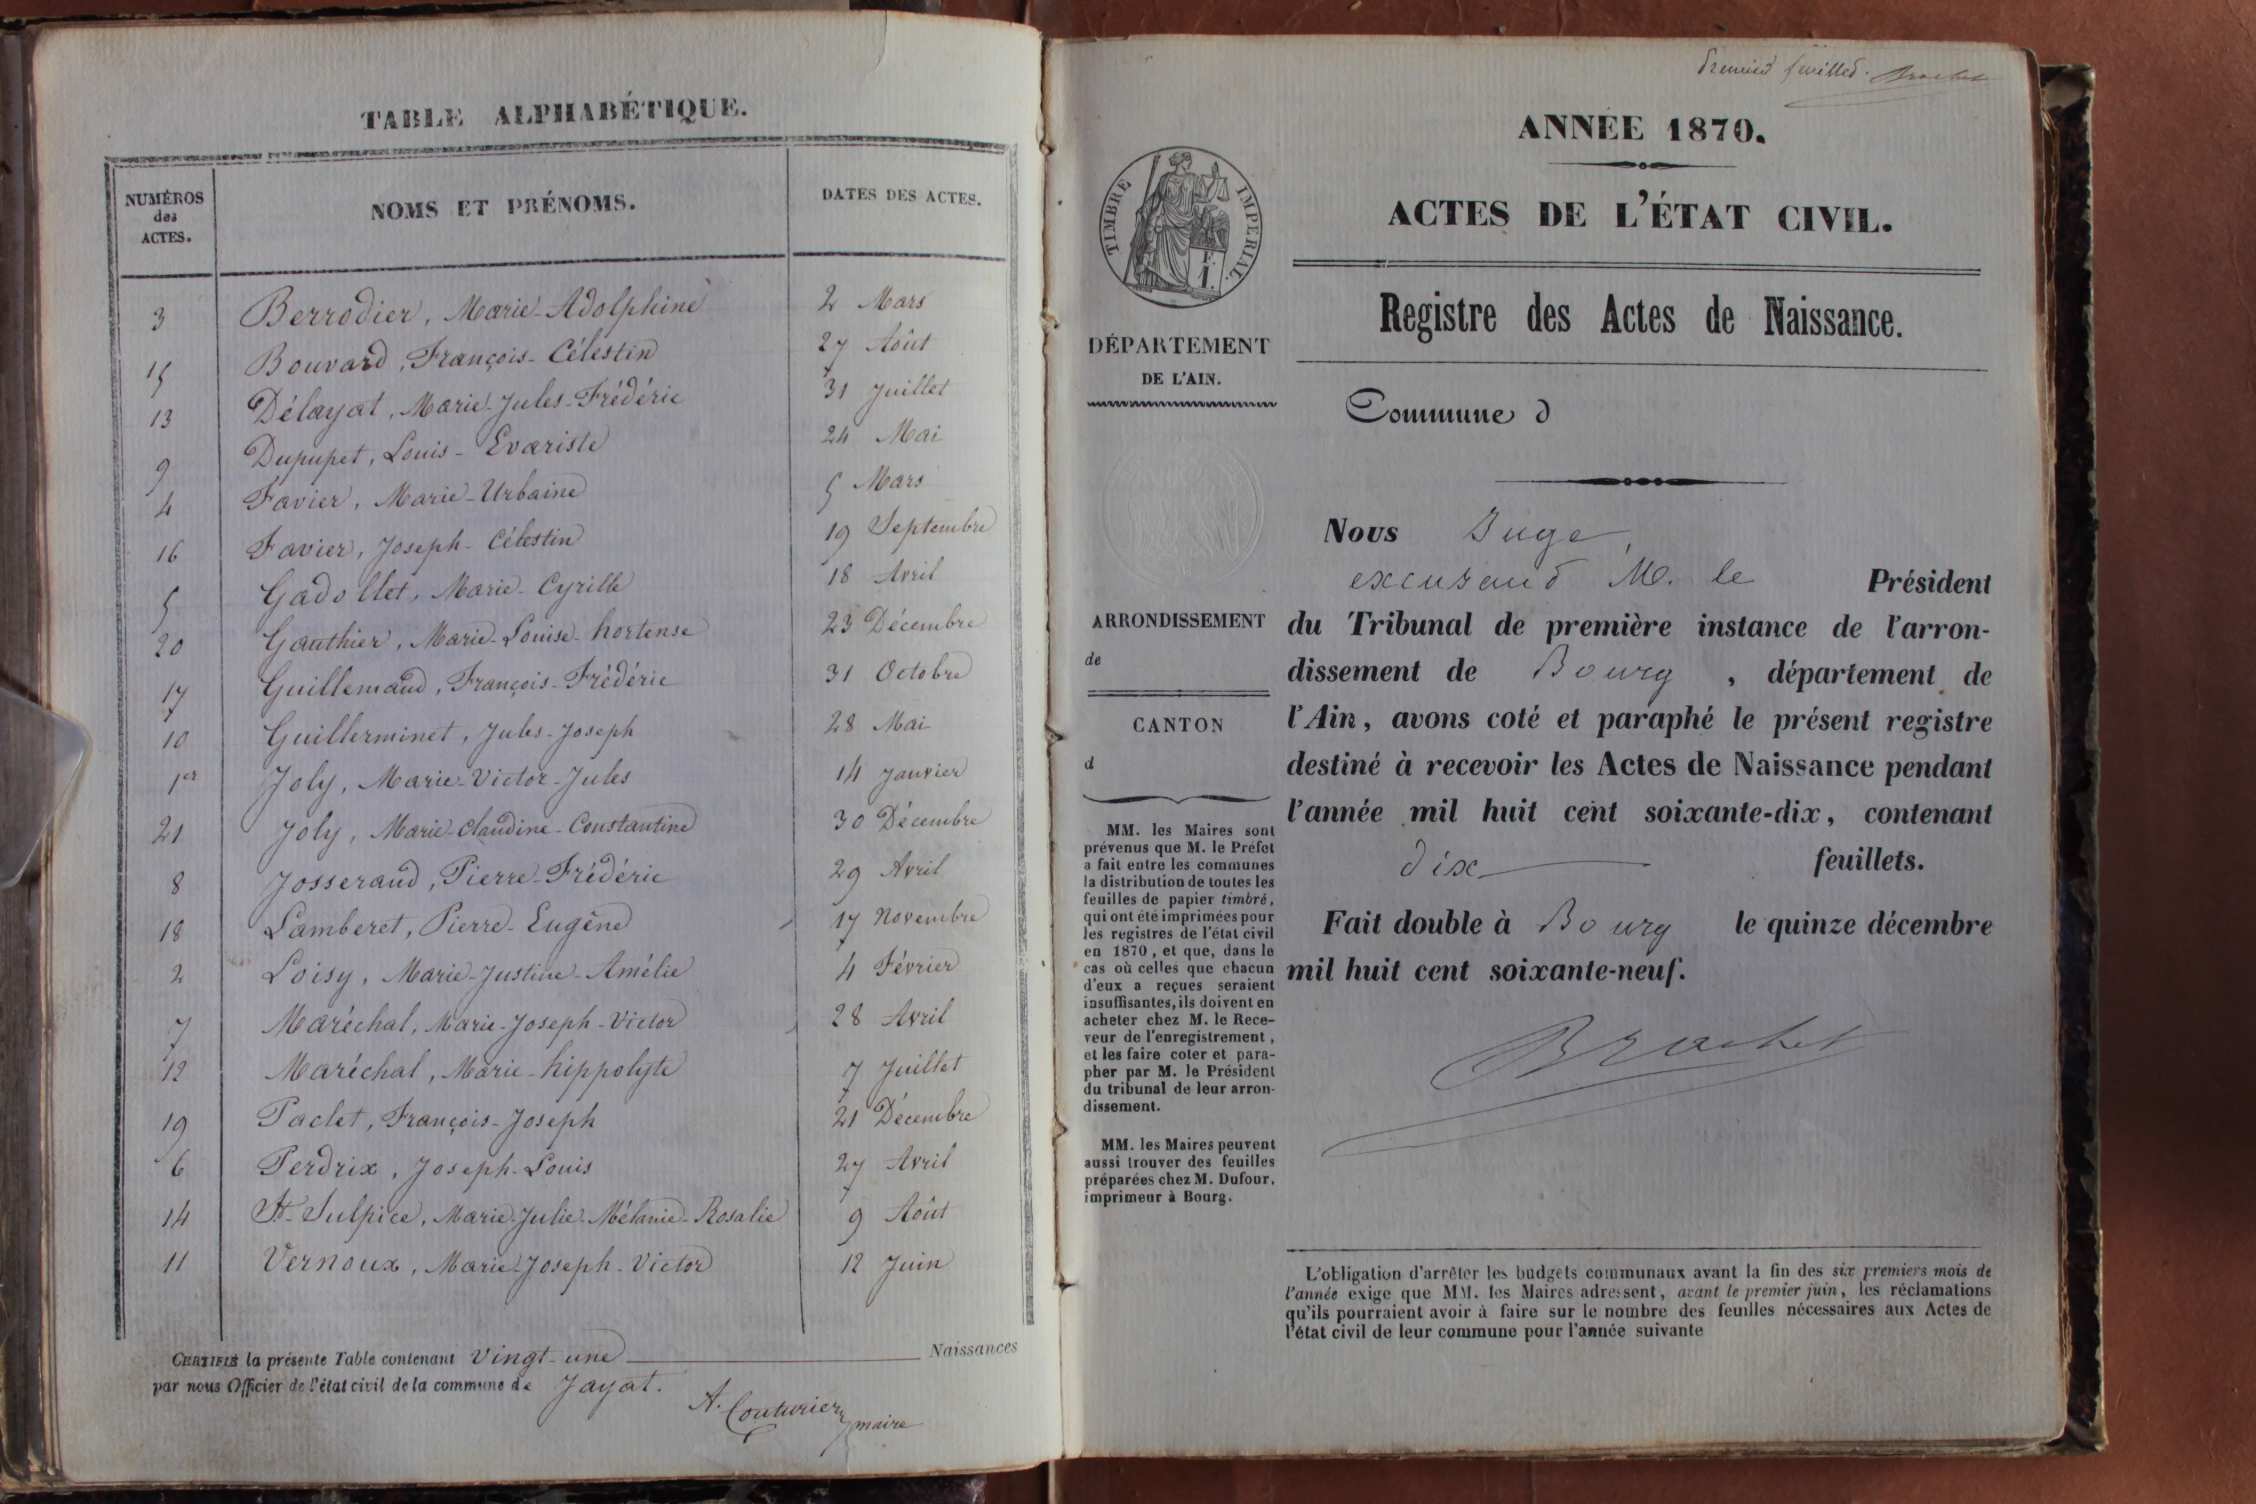 TABLE ALPHABÉTIQUE.
NUMÉROS
des
ACTES.
NOMS ET PRÉNOMS.
DATES DES ACTES.
3 Berrodier, Marie-Adolphine 2 Mars
15 Bouvard, François-Célestin 27 Août
13 Délayat, Marie-Jules-Frédéric 31 Juillet
9 Dupupet, Louis-Evariste 24 Mai
4 Favier, Marie-Urbaine 5 Mars
16 Favier, Joseph-Célestin 19 Septembre
5 Gadollet, Marie-Cyrille 18 Avril
20 Gauthier, Marie-Louise-hortense 23 Décembre
17 Guillemaud, François-Frédéric 31 Octobre
10 Guillerminet, Jules-Joseph 28 Mai
1er Joly, Marie-Victor-Jules 14 Janvier
21 Joly, Marie-Claudine-Constantine 30 Décembre
8 Josserand, Pierre-Frédéric 29 Avril
18 Lamberet, Pierre-Eugène 17 Novembre
2 Loisy, Marie-Justine-Amélie 4 Février
7 Maréchal, Marie-Joseph-Victor 28 Avril
12 Maréchal, Marie-hippolyte 7 Juillet
19 Paclet, François-Joseph 21 Décembre
6 Perdrix, Joseph-Louis 27 Avril
14 St-Sulpice, Marie-Julie-Mélanie-Rosalie 9 Août
11 Vernoux, Marie-Joseph-Victor 12 Juin
CERTIFIÉ la présente Table contenant Vingt-une Naissances
par nous Officier de l'état civil de la commune de Jayat.
A. Couturier, maire
Premier feuillet. Brachet
ANNÉE 1870.
ACTES DE L'ÉTAT CIVIL.
Registre des Actes de Naissance.
TIMBRE IMPÉRIAL.
F.
1.
DÉPARTEMENT
DE L'AIN.
Commune d
ARRONDISSEMENT
de
CANTON
d
MM. les Maires sont
prévenus que M. le Préfet
a fait entre les communes
la distribution de toutes les
feuilles de papier timbré,
qui ont été imprimées pour
les registres de l'état civil
en 1870, et que, dans le
cas où celles que chacun
d'eux a reçues seraient
insuffisantes, ils doivent en
acheter chez M. le Rece-
veur de l'enregistrement,
et les faire coter et para-
pher par M. le Président
du tribunal de leur arron-
dissement.
MM. les Maires peuvent
aussi trouver des feuilles
préparées chez M. Dufour,
imprimeur à Bourg.
Nous Juge
excusant M. le Président
du Tribunal de première instance de l'arron-
dissement de Bourg, département de
l'Ain, avons coté et paraphé le présent registre
destiné à recevoir les Actes de Naissance pendant
l'année mil huit cent soixante-dix, contenant
dix feuillets.
Fait double à Bourg le quinze décembre
mil huit cent soixante-neuf.
Brachet
L'obligation d'arrêter les budgets communaux avant la fin des six premiers mois de
l'année exige que MM. les Maires adressent, avant le premier juin, les réclamations
qu'ils pourraient avoir à faire sur le nombre des feuilles nécessaires aux Actes de
l'état civil de leur commune pour l'année suivante